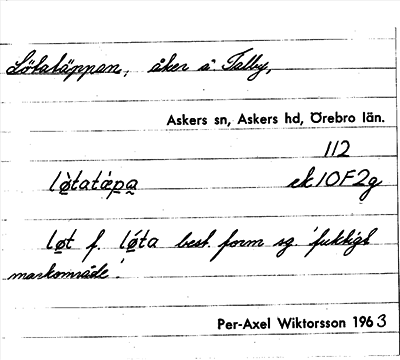 Lötatäppan, åker å Talby,
Askers sn, Askers hd, Örebro län.
112
lø̀tatæpa ek 10F2g
løt f. lǿta best. form sg. 'fuktigt
markområde'.
Per-Axel Wiktorsson 1963